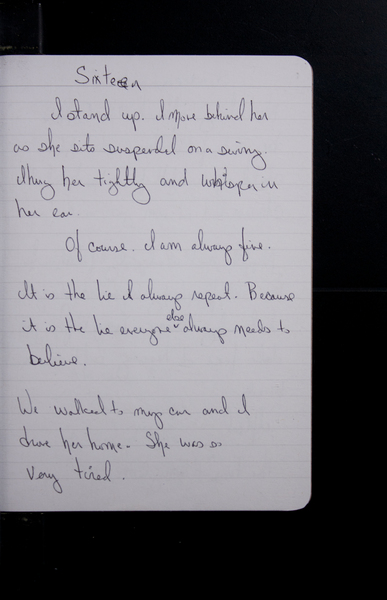 Sixteen
I stand up. I move behind her
as she sits suspended on a swing.
I hug her tightly and whisper in
her ear.
Of course. I am always fine.
It is the lie I always repeat. Because
it is the lie everyone else always needs to
believe.
We walked to my car and I
drove her home. She was so
very tired.